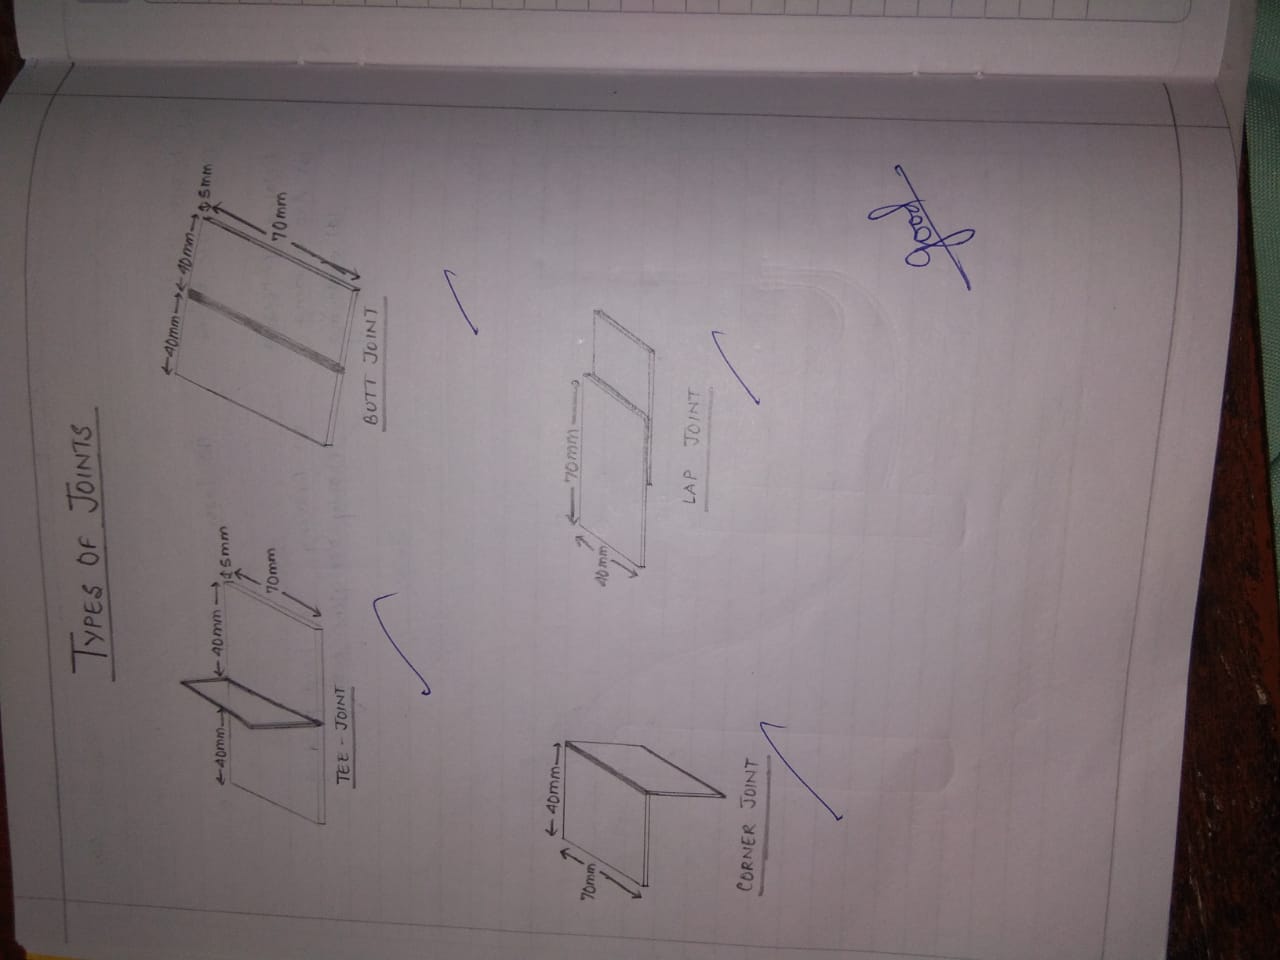 TYPES OF JOINTS
←40mm→
←40mm→
5mm
70mm
TEE - JOINT
←40mm→
←40mm→
5mm
70mm
BUTT JOINT
←40mm→
70mm
CORNER JOINT
←70mm→
40mm
LAP JOINT